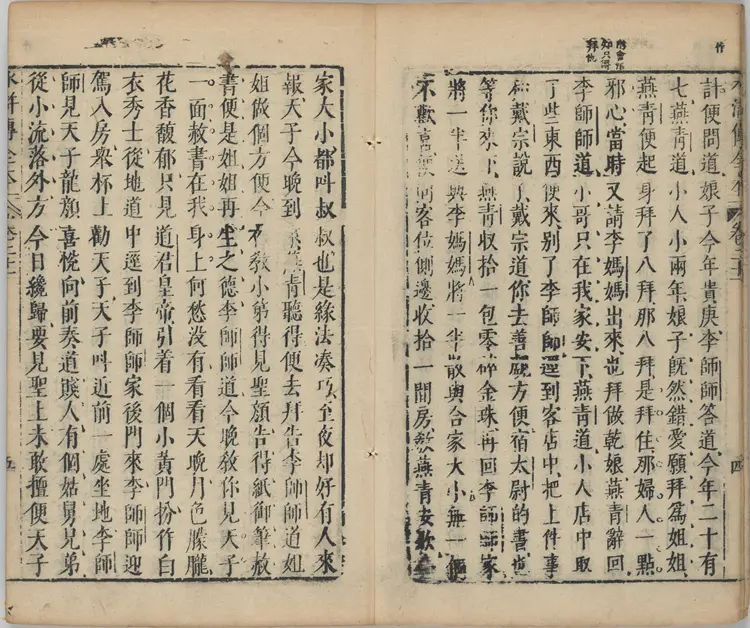 竹
知只得
計便問道娘子今年貴庚李師師答道今年二十有
七燕青道小人小兩年娘子旣然錯愛願拜爲姐姐
燕青便起身拜了八拜那八拜是拜住那婦人一點
邪心當時又請李媽媽出來也拜做乾娘燕青辭回
李師師道小哥只在我家安下燕青道小人店中取
了些東西便來別了李師師逕到客店中把上件事
和戴宗說了戴宗道你去善覷方便宿太尉的書也
等你來下燕青收拾一包零碎金珠再回李師師家
將一半送與李媽媽將一半散與合家大小無一個
不歡喜 客位側邊收拾一間房教燕青安歇合
四
家大小都呌叔叔也是緣法湊巧至夜却好有人來
報天子今晚到 燕青聽得便去拜告李師師道姐
姐做個方便今 教小弟得見聖顏告得紙御筆赦
書便是姐姐再生之德李師師道今晚敎你見天子
一面赦書在我身上何愁沒有看看天晚月色朦朧
花香馥郁只見道君皇帝引着一個小黃門扮作白
衣秀士從地道中逕到李師師家後門來李師師迎
駕入房衆杯上勸天子天子呌近前一處坐地李師
師見天子龍顏喜悅向前奏道賤人有個姑舅兄弟
從小流落外方今日纔歸要見聖上未敢擅便天子
五